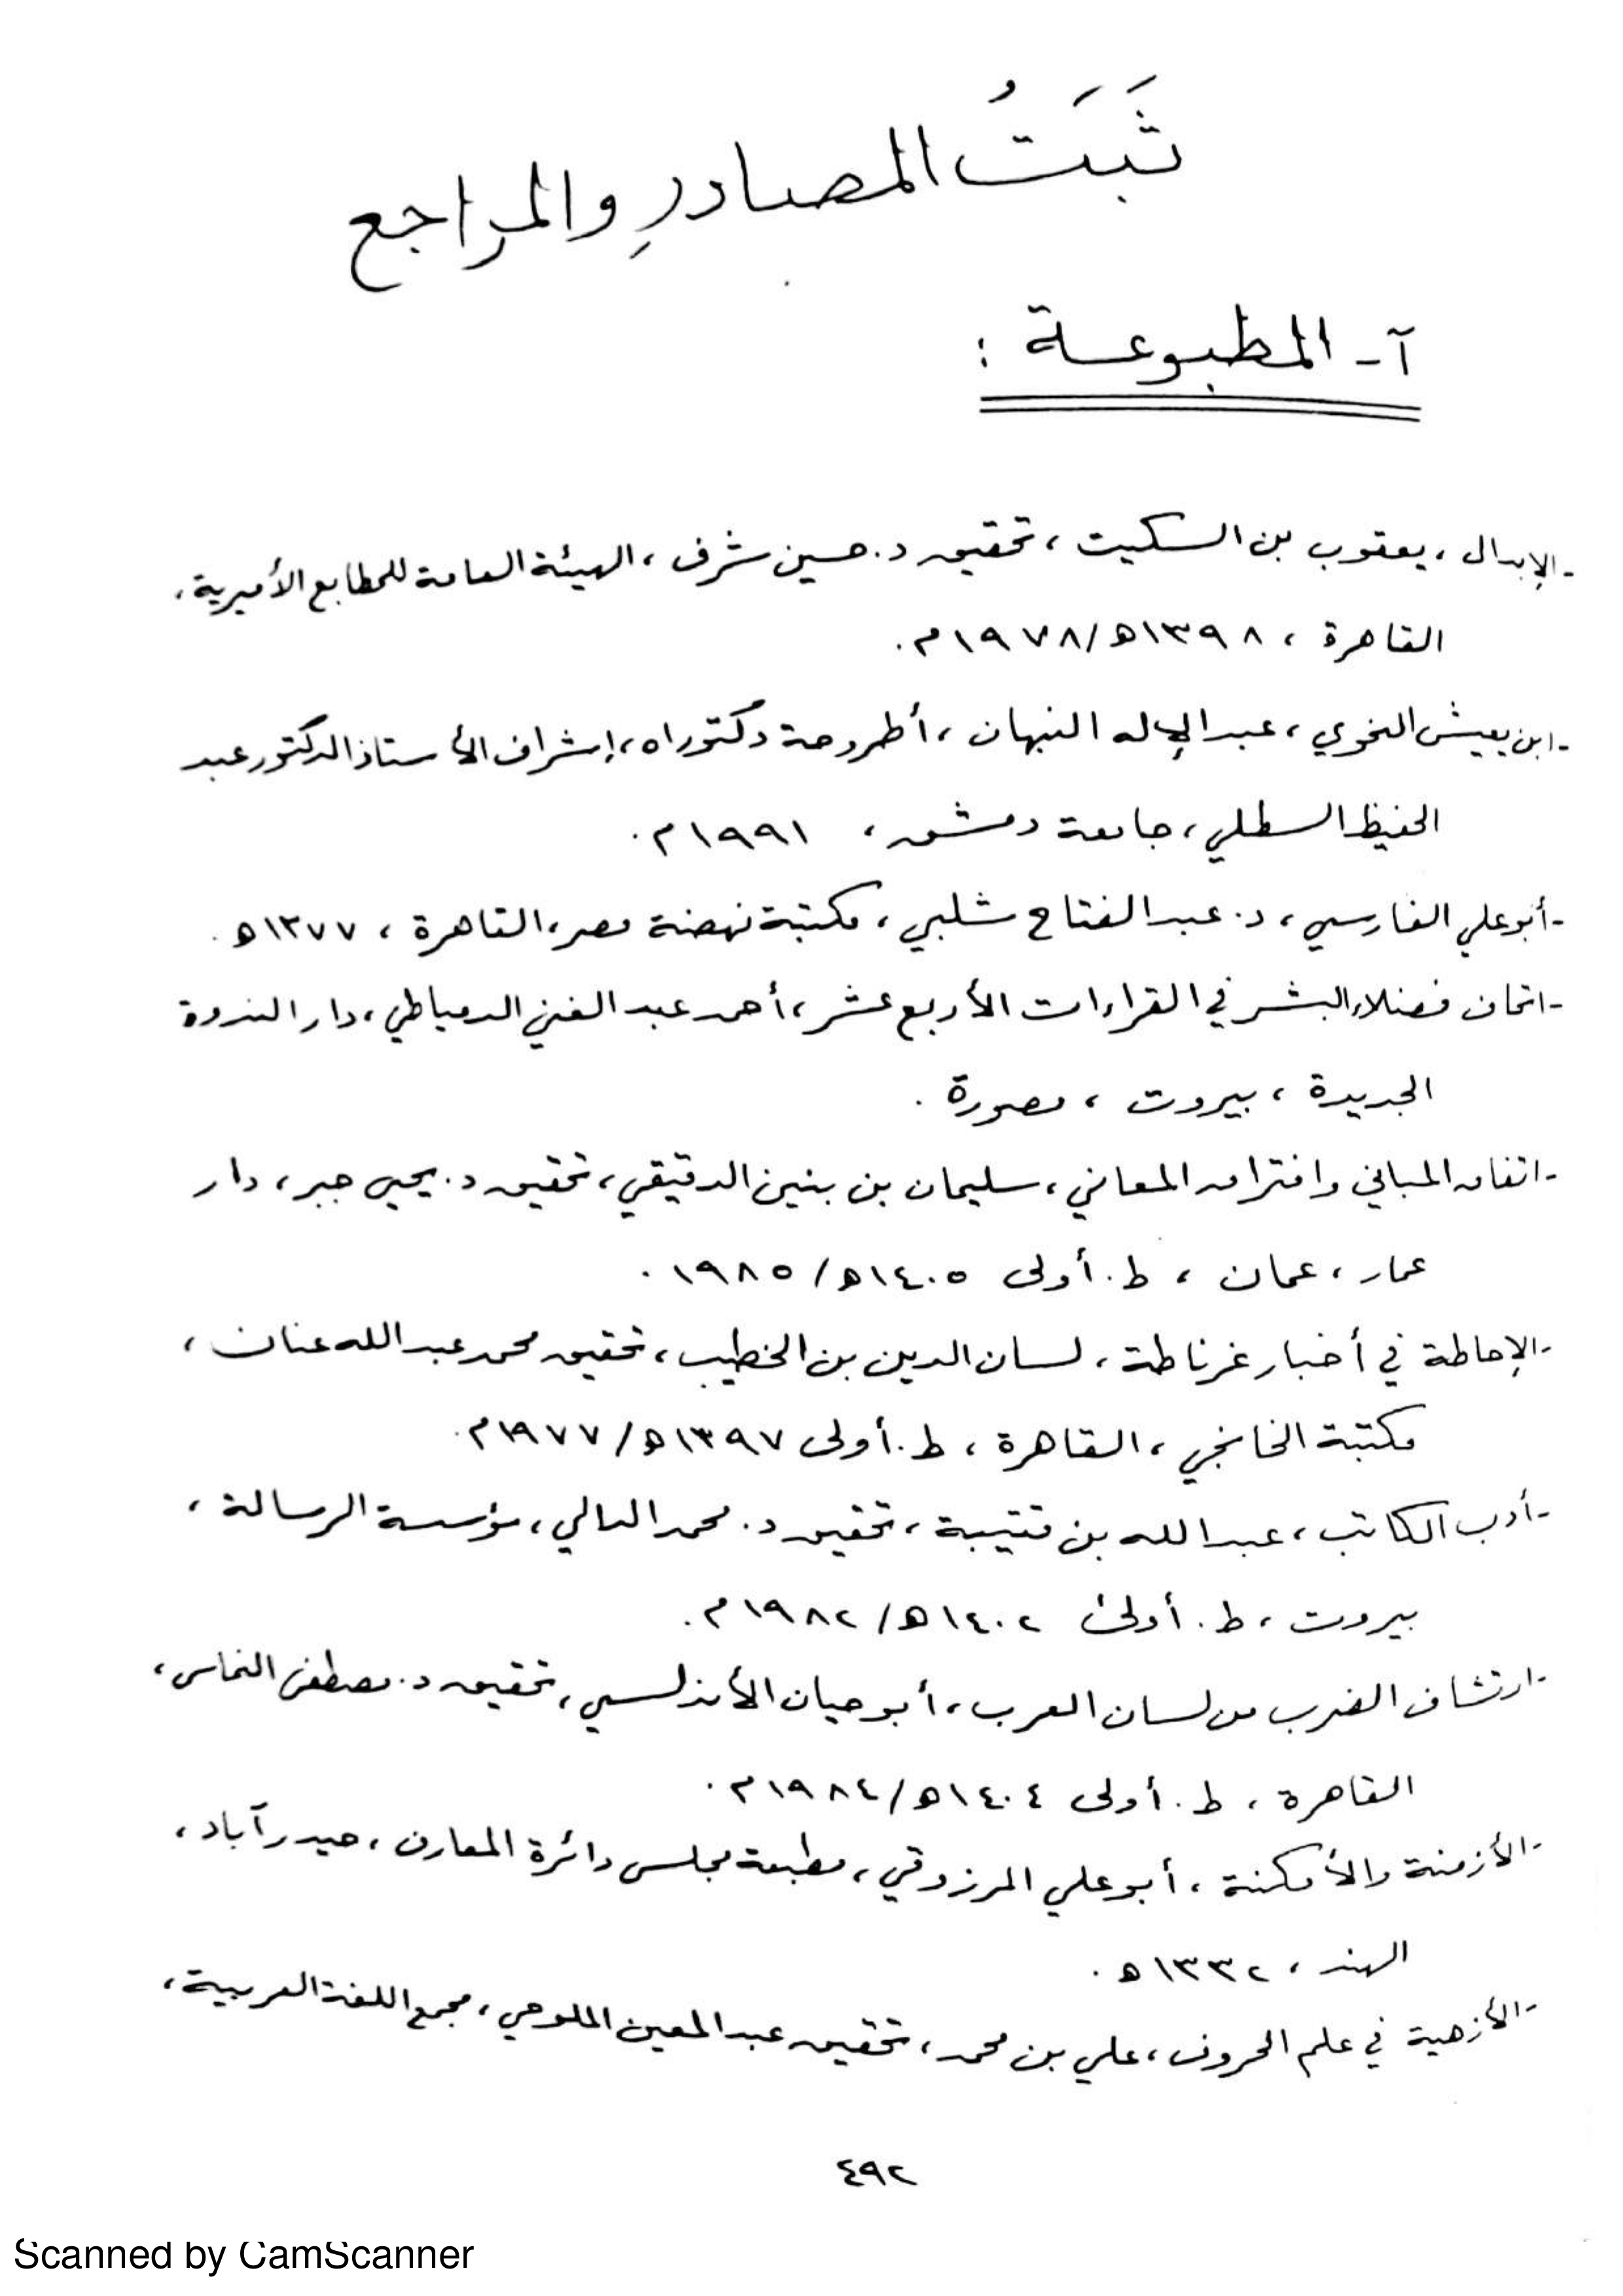 ثَبَتُ المصادرِ والمراجع
آ- المطبوعة :
-الإبدال ، يعقوب بن السكيت ، تحقيق د. حسين شرف ، الهيئة العامة للمطابع الأميرية ،
القاهرة ، ١٣٩٨ه/١٩٧٨م.
-ابن يعيش النحوي ، عبد الإله النبهان ، أطروحة دكتوراه ، إشراف الأستاذ الدكتور عبد
الحفيظ السطلي ، جامعة دمشق ، ١٩٩١م.
-أبو علي الفارسي ، د. عبد الفتاح شلبي ، مكتبة نهضة مصر ، القاهرة ، ١٣٧٧ه.
-اتحاف فضلاء البشر في القراءات الأربع عشر ، أحمد عبد الغني الدمياطي ، دار الندوة
الجديدة ، بيروت ، مصورة .
-اتفاق المباني وافتراق المعاني ، سليمان بن بنين الدقيقي ، تحقيق د. يحيى جبر ، دار
عمار ، عمان ، ط. أولى ١٤٠٥ه/١٩٨٥.
-الإحاطة في أخبار غرناطة ، لسان الدين بن الخطيب ، تحقيق محمد عبد الله عنان ،
مكتبة الخانجي ، القاهرة ، ط. أولى ١٣٩٧ه/١٩٧٧م.
-أدب الكاتب ، عبد الله بن قتيبة ، تحقيق د. محمد الدالي ، مؤسسة الرسالة ،
بيروت ، ط. أولى ١٤٠٢ه/١٩٨٢م.
-ارتشاف الضرب من لسان العرب ، أبو حيان الأندلسي ، تحقيق د. مصطفى النماس ،
القاهرة ، ط. أولى ١٤٠٤ه/١٩٨٤م.
-الأزمنة والأمكنة ، أبو علي المرزوقي ، مطبعة مجلس دائرة المعارف ، حيدر آباد ،
الهند ، ١٣٣٢ه.
-الأزهية في علم الحروف ، علي بن محمد ، تحقيق عبد المعين الملوحي ، مجمع اللغة العربية ،
٤٩٢
Scanned by CamScanner